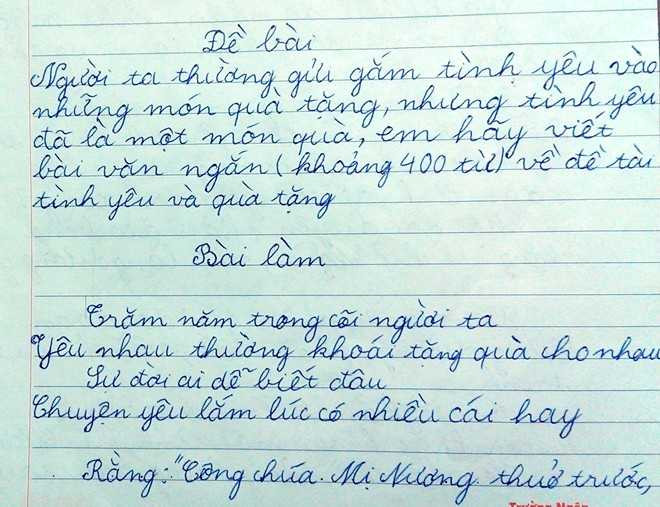 Đề bài
Người ta thường gửi gắm tình yêu vào
những món quà tặng, nhưng tình yêu
đã là một món quà, em hãy viết
bài văn ngắn (khoảng 400 từ) về đề tài
tình yêu và quà tặng
Bài làm
Trăm năm trong cõi người ta
Yêu nhau thường khoái tặng quà cho nhau
Sự đời ai dễ biết đâu
Chuyện yêu lắm lúc có nhiều cái hay
Rằng: "Công chúa Mị Nương thuở trước,
Trường Ngân